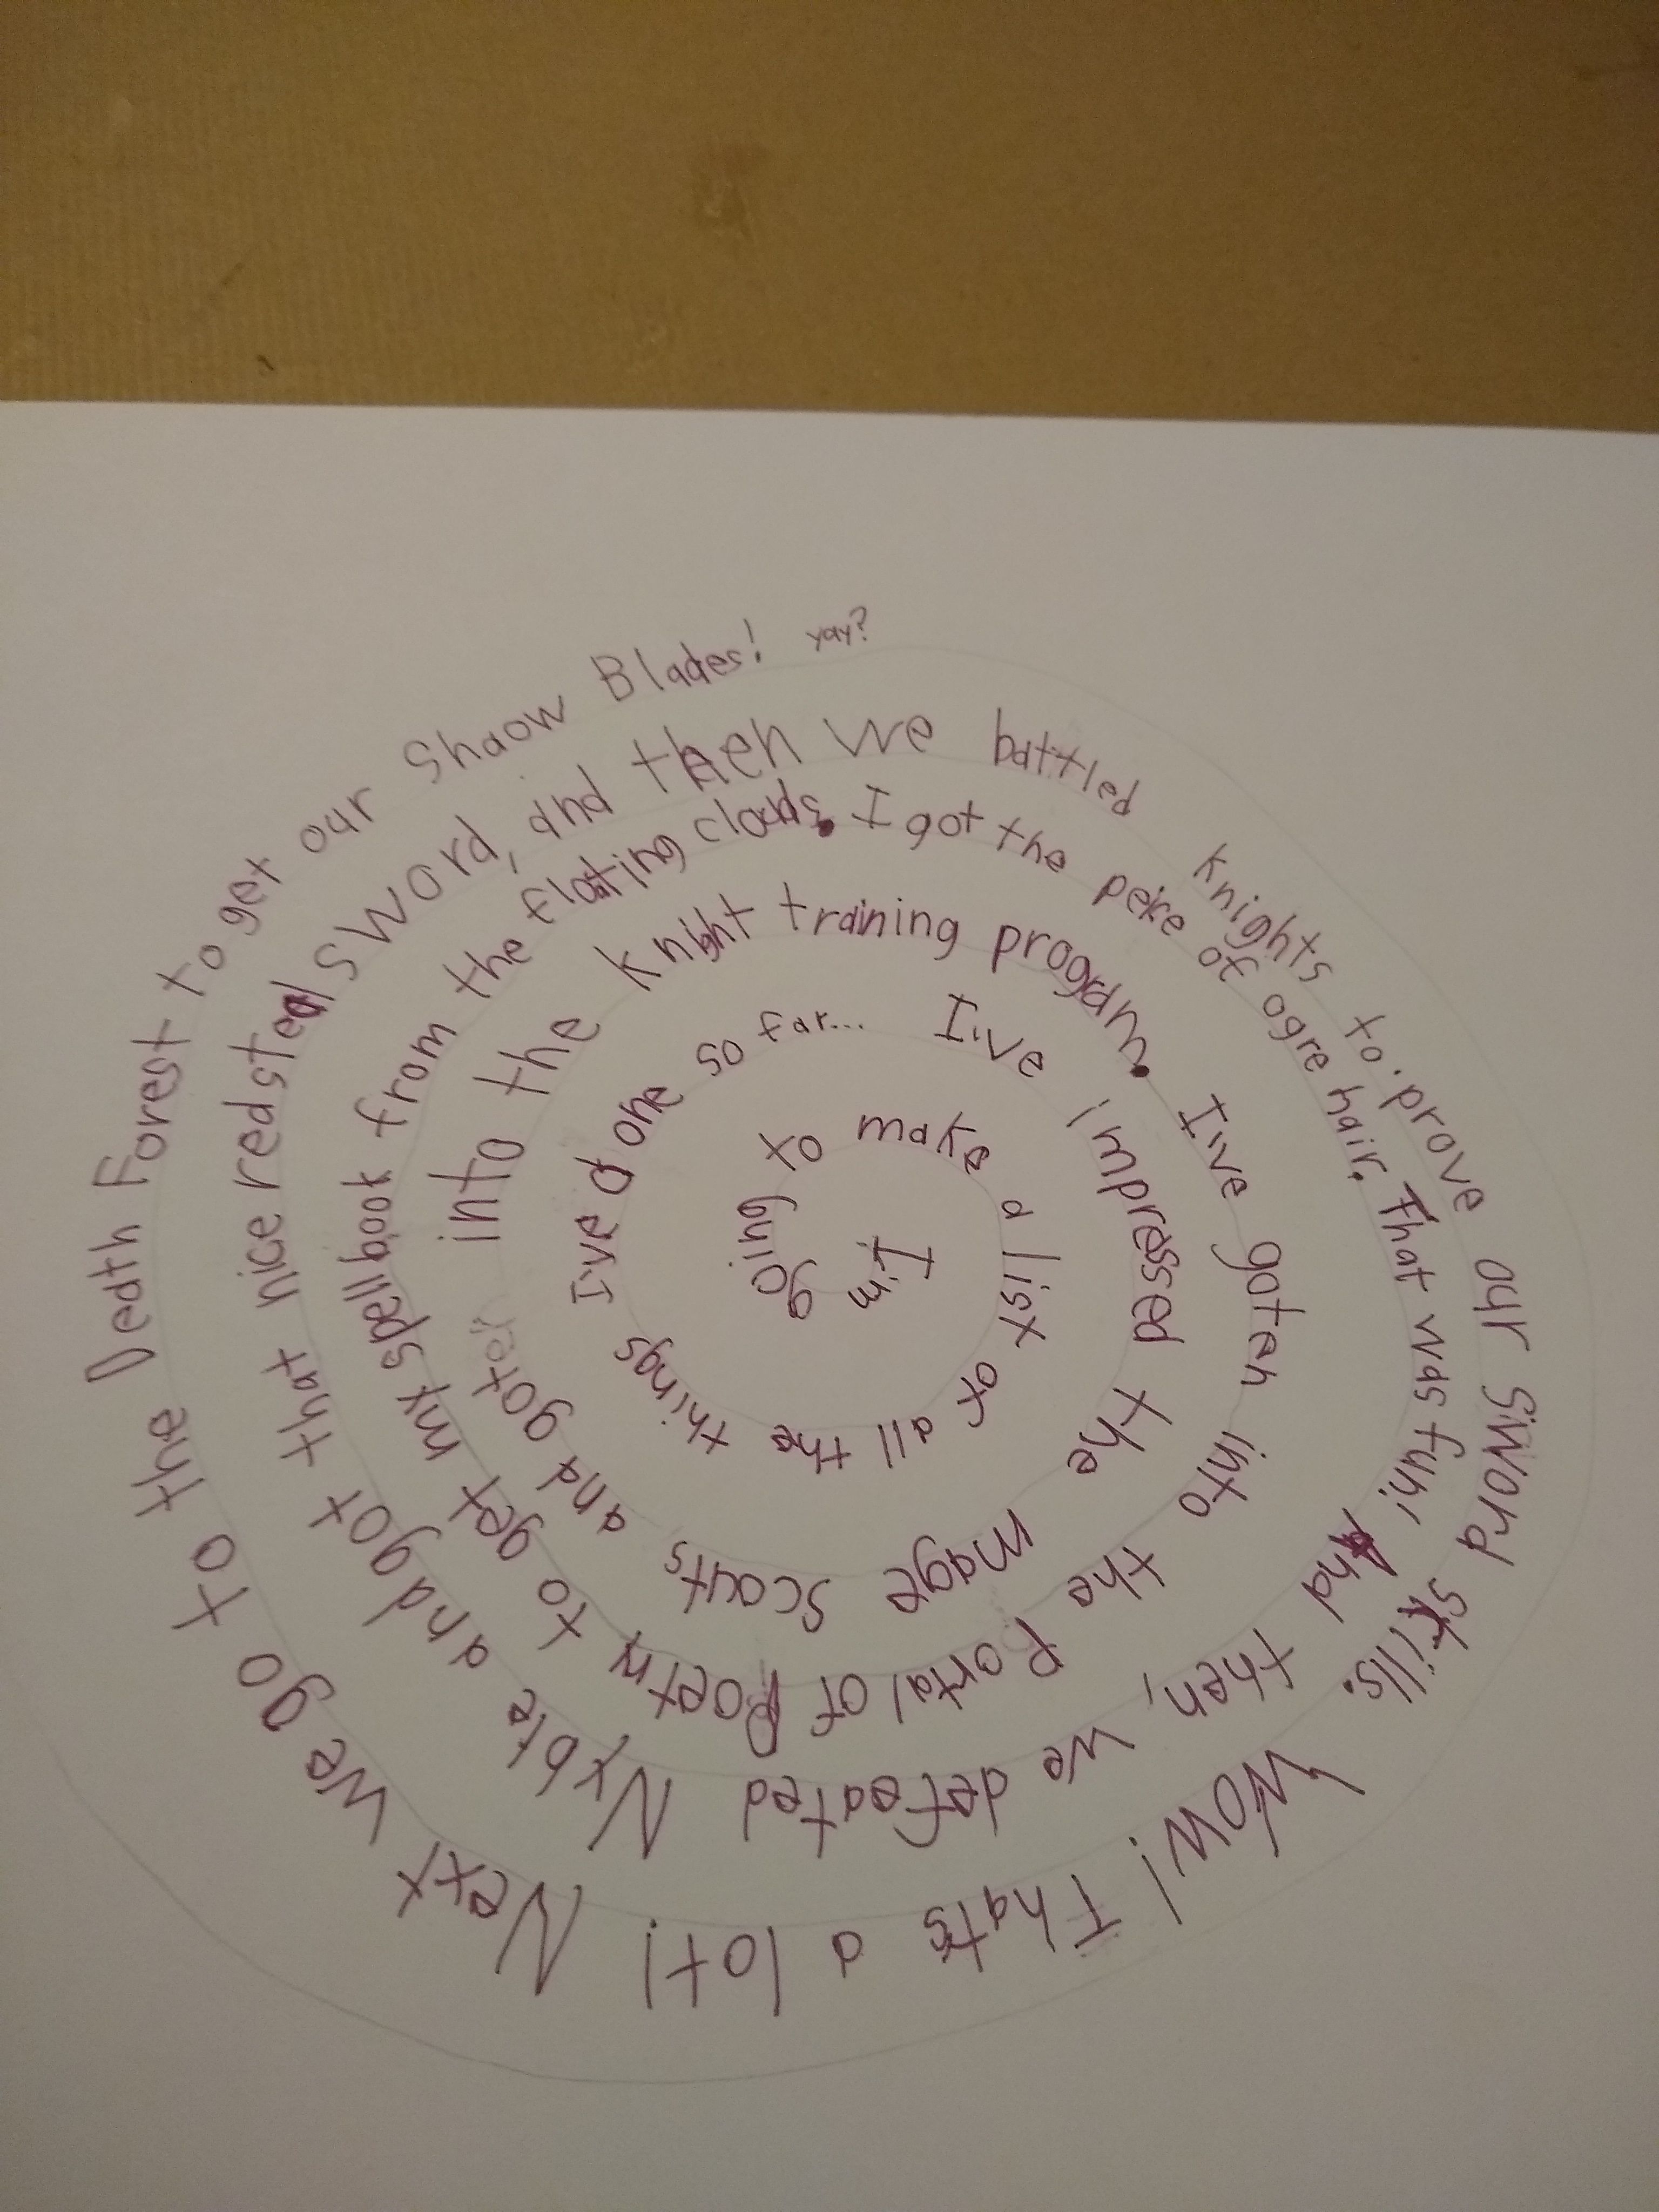 I'm going to make a list of all the things I've done so far... I've impressed the mage scouts and goten into the Knight training program. I've goten into the Portal of Poetry to get my spellbook from the floating clouds. I got the peice of ogre hair. That was fun! And then, we defeated Nyble and got that nice red steal sword, and then we battled Knights to prove our sword skills. Wow! Thats a lot! Next we go to the Death Forest to get our Shaow Blades! yay?